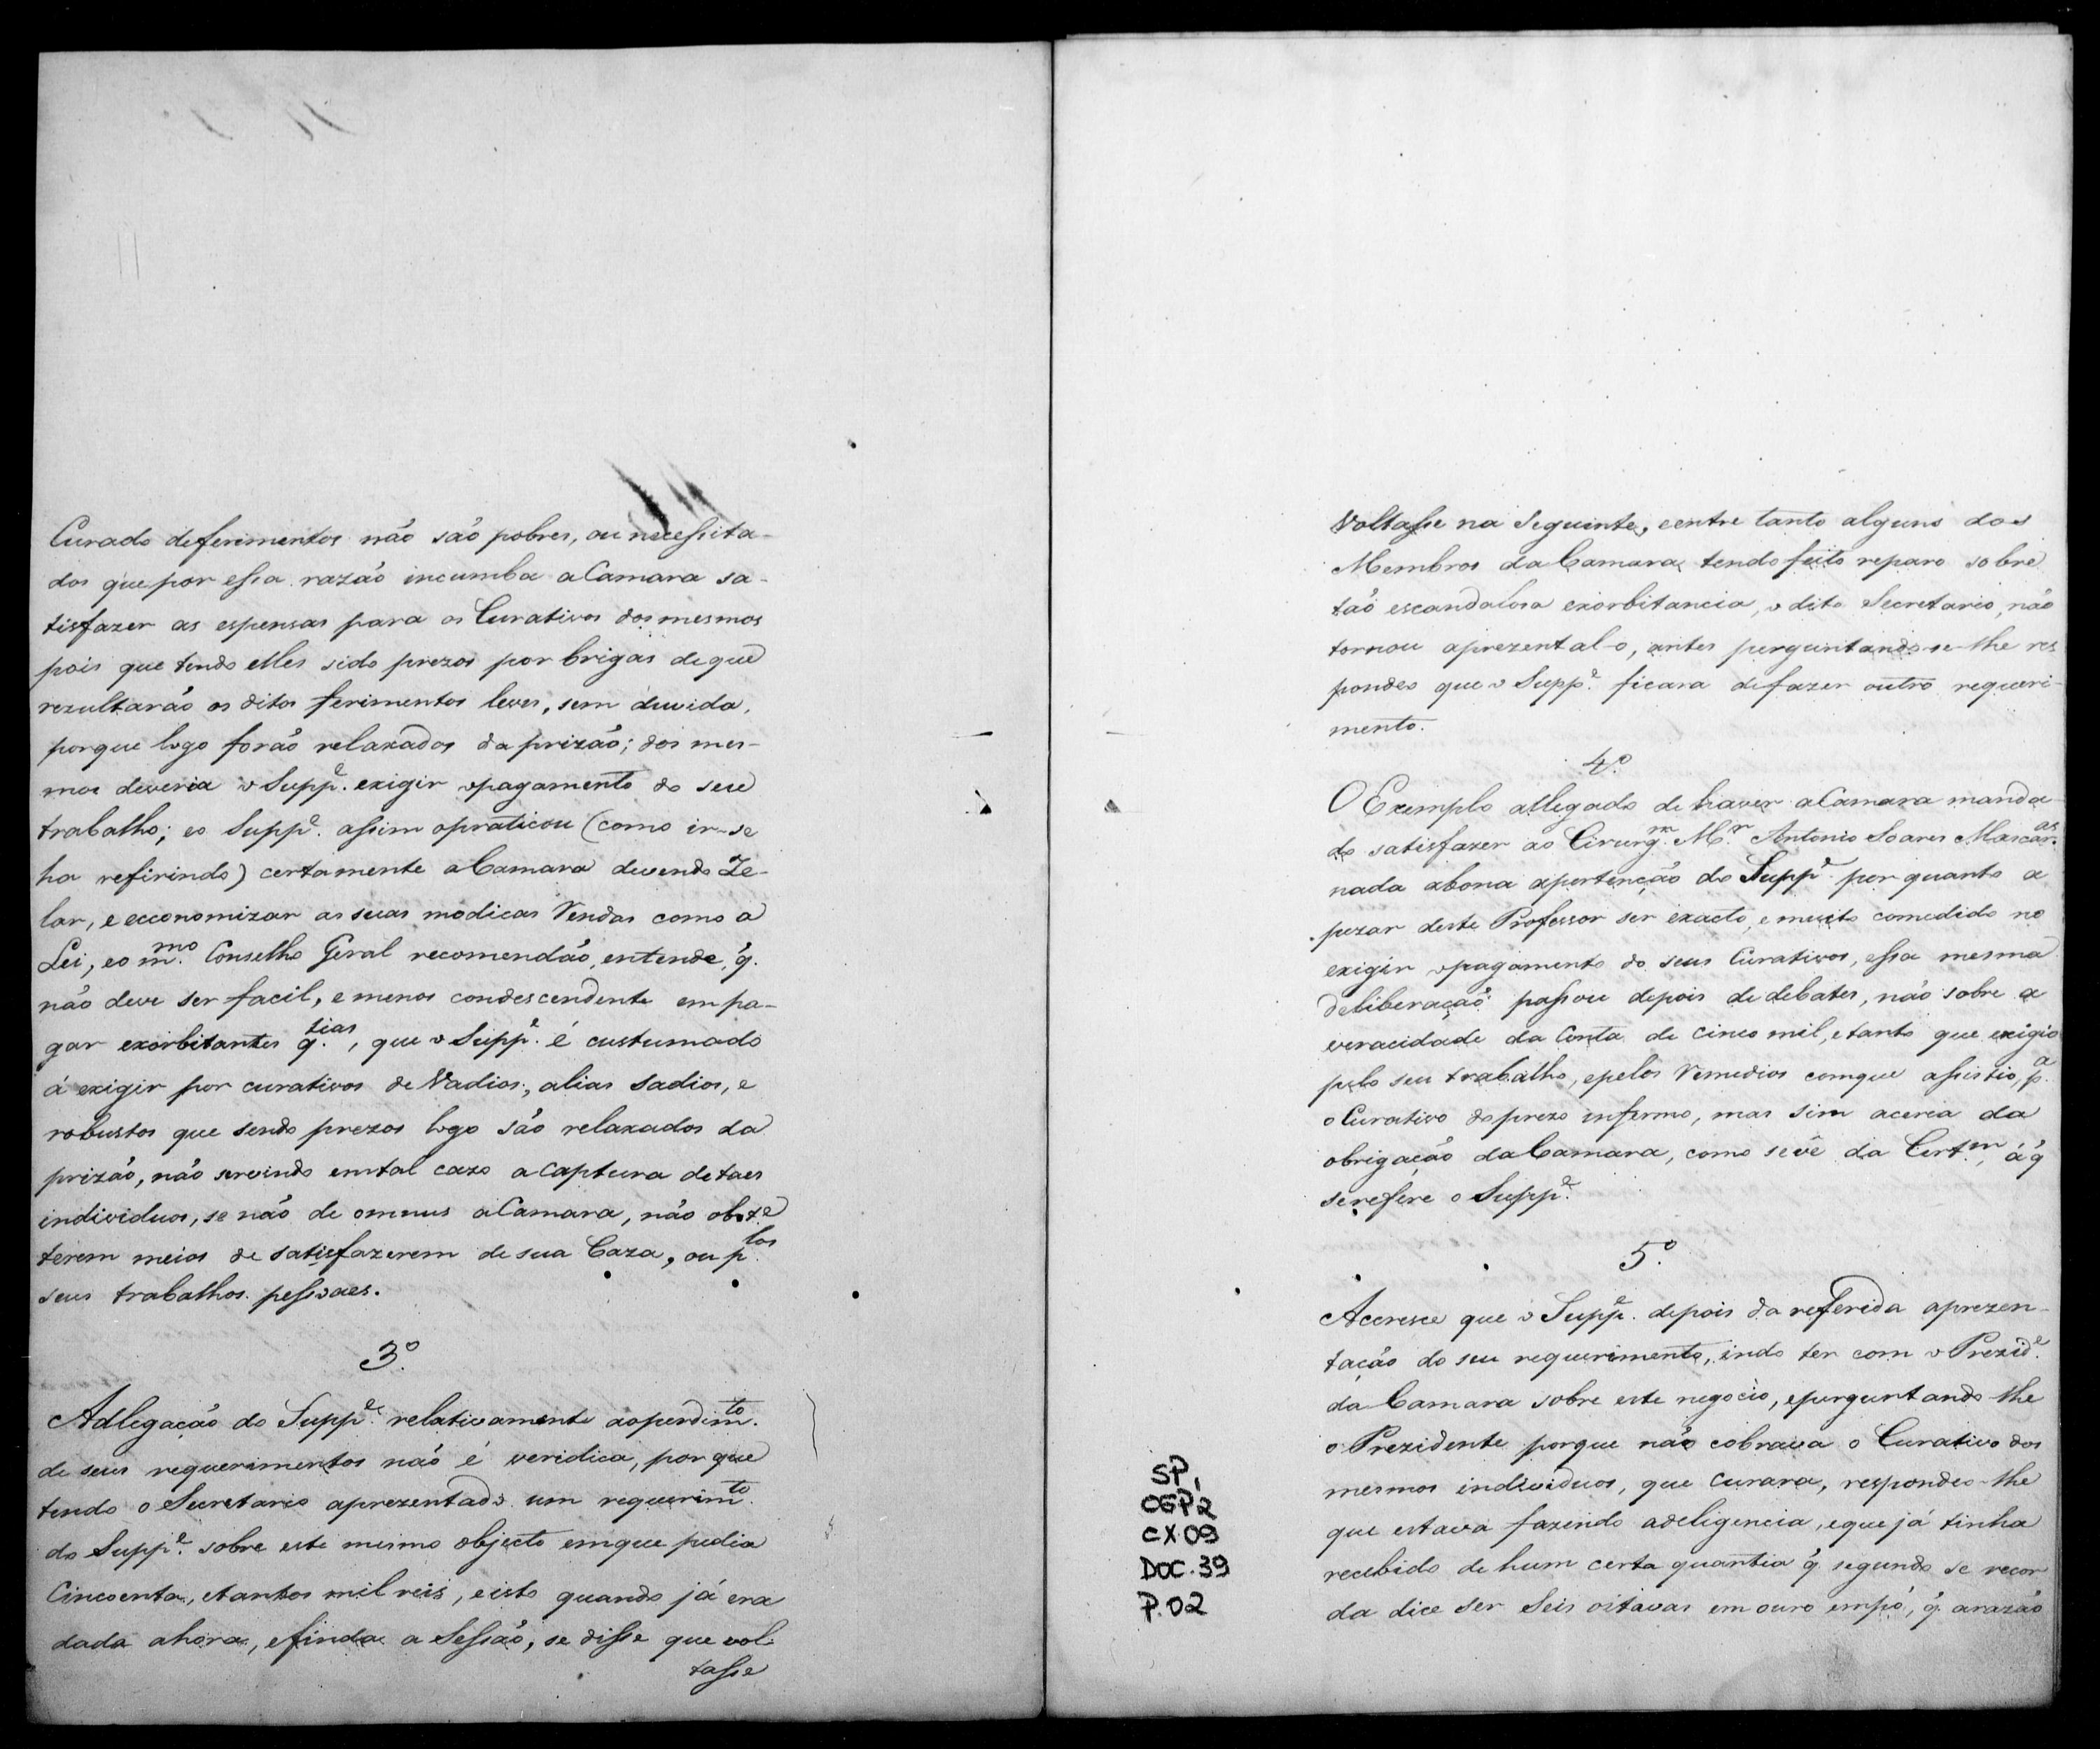 Curado deferimentos não são pobres, ou necessita-
dos que por essa razão incumba aCamara sa-
tisfazer as espensas para os Curativos dos mesmos
pois que tendo elles sido prezos por brigas deque
rezultarão os ditos ferimentos leves, sem duvida,
porque logo forão relaxados da prizão; dos mes-
mos deveria o Supp.e exigir opagamento do seu
trabalho; eo Supp.e assim opraticou (como ir-se
ha refirindo) certamente aCamara devendo Ze-
lar, e economizar as suas modicas Rendas como a
Lei, eo m.mo Conselho Geral recomendão, entende, q.
não deve ser facil, e menos condescendente em pa-
gar exorbitantes q.tias, que o Supp.e é custumado
á exigir por curativos de Vadios, alias sadios, e
robustos que sendo prezos logo são relaxados da
prizão, não servindo emtal cazo a captura detaes
individuos, se não de omnus aCamara, não obst.e
terem meios de satisfazerem de sua Caza, ou p.los
seus trabalhos pessoaes.
3.o
Adlegação do Supp.e relativamente aoperdim.to
de seus requerimentos não é veridica, por que
tendo o Secretario aprezentado um requerim.to
do Supp.e sobre este mesmo objecto emque pedia
Cincoenta, etantos mil reis, eisto quando já era
dada ahora, efinda a Sessão, se disse que vol-
tasse
Voltasse na Seguinte, eentre tanto alguns dos
Membros daCamara tendo feito reparo sobre
tão escandaloza exorbitancia, o dito Secretario, não
tornou aprezental-o, antes perguntando-se-lhe res
pondeo que o Supp.e ficara defazer outro requeri-
mento.
4.o
O Exemplo allegado de haver aCamara manda-
do satisfazer ao Cirurg.m M.r Antonio Soares Mascar.as
nada abona apertenção do Supp.e por quanto a
pezar deste Professor ser exacto, e muito comedido no
exigir opagamento do seus Curativos, essa mesma
deliberação passou depois de debates, não sobre a
veracidade da Conta de cinco mil, etanto que exigio
pelo seu trabalho, epelos remedios comque assistio, p.a
o Curativo doprezo infermo, mas sim acerca da
obrigação daCamara, como sevê da Cert.m, áq
serefere o Supp.e
5.o
Acresce que o Supp.e depois da referida aprezen-
tação do seu requerimento, indo ter com o Prezid.e
da Camara sobre este negocio, eperguntando-lhe
o Prezidente porque não cobrava o Curativo dos
mesmos individuos, que curara, respondeo-lhe
que estava fazendo adeligencia, eque já tinha
recebido de hum certa quantia q segundo se recor
da dice ser Seis oitavas em ouro empó, q. arazão
SP,
OGP2
CX.09
DOC.39
P.02